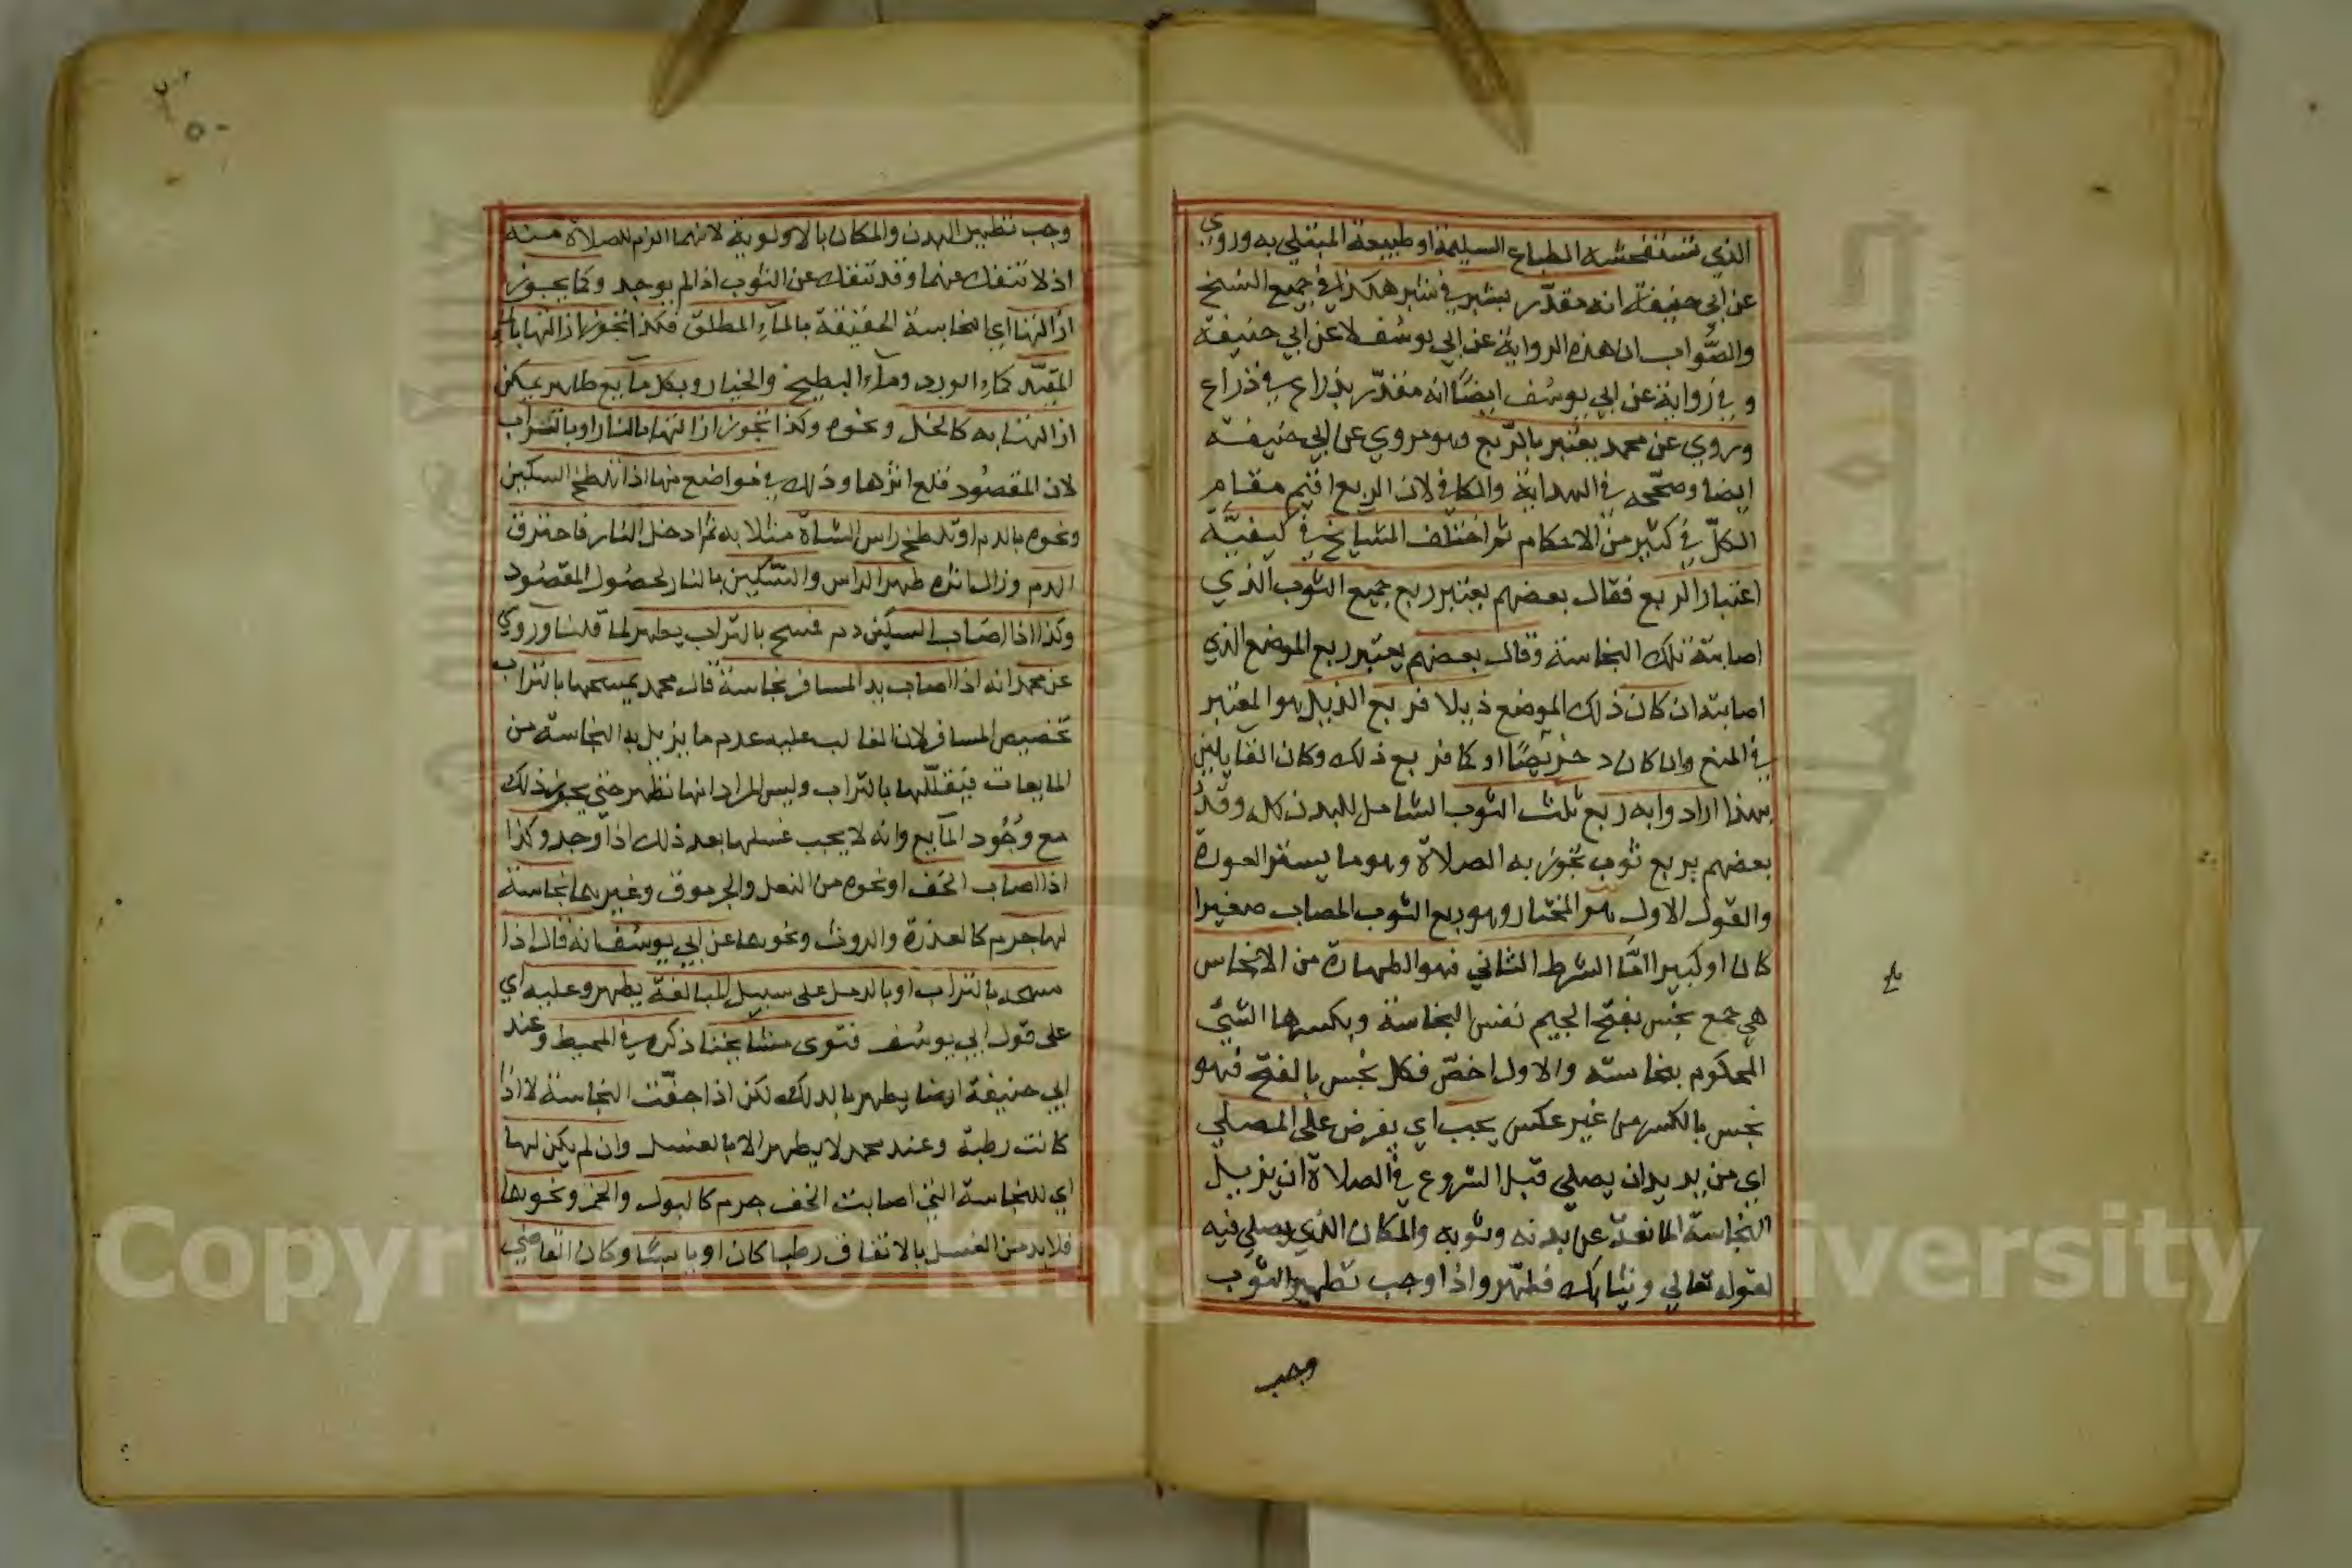 الذي تستفحشه الطباع السليمة او طبيعة المبتلي به وروي
عن ابي حنيفة انه مقدّر بشبر في شبر هكذا في جميع النسخ
والصَّواب ان هذه الرواية عن ابي يوسُف لا عن ابي حنيفة
وفي رواية عن ابي يوسُف ايضًا انه مقدّر بذراع في ذراع
وروي عن محمد يعتبر بالرّبع وهو مروي عن ابي حنيفة
ايضا وصحّحه في الهداية والكافي لان الربع اقيم مقام
الكلّ في كثير من الاحكام ثم اختلف المشايخ في كيفيَّة
اعتبار الربع فقال بعضهم يعتبر ربع جميع الثوب الذي
اصابته تلك النجاسة وقال بعضهم يعتبر ربع الموضع الذي
اصابته ان كان ذلك الموضع ذيلا فربع الذيل هو المعتبر
في المنع وان كان دخريصًا او كما فربع ذلك وكان القايلين
بهذا ارادوا به ربع ثلث الثوب الشامل للبدن كله وقدّ
بعضهم بربع ثوب تجوز به الصلاة وهو ما يستر العورة
والقول الاول هو المختار وهو ربع الثوب المصاب صغيرا
كان او كبيرا امَّا الشرط الثاني فهو الطهارة من الانجاس
هي جمع نجس بفتح الجيم نفس النجاسة وبكسرها الشئ
المحكوم بنجاسته والاول اخصّ فكل نجس بالفتح فهو
نجس بالكسر من غير عكس يجب اي يفرض على المصلي
اي من يريد ان يصلي قبل الشروع في الصلاة ان يزيل
النجاسة المانعة عن بدنه وثوبه والمكان الذي يصلي فيه
لقوله تعالي وثيابك فطهّر واذا وجب تطهير الثوب
وجب
وجب تطهير البدن والمكان بالاولوية لانهما الزم للصلاة منه
اذ لا تنفك عنهما وقد تنفك عن الثوب اذا لم يوجد وكما يجوز
ازالتها اي النجاسة الحقيقة بالماء المطلق فكذا تجوز ازالتها بالماء
المقيّد كماء الورد وماء البطيخ والخيار وبكل مايع طاهر يمكن
ازالتها به كالخل ونحوه وكذا تجوز ازالتها بالنار او بالتراب
لان المقصُود قلع اثرها وذلك في مواضع منها اذا تلطخ السكين
ونحوه بالدم او تلطخ راس الشاة مثلا به ثم ادخل النار فاحترق
الدم وزال اثره طهر الراس والسّكين بالنار لحصُول المقصُود
وكذا اذا اصَاب السكين دم فمسح بالتراب يطهر لما قلنا وروي
عن محمد انه اذا اصاب يد المسافر نجاسة قال محمد يمسحها بالتراب
تخصيص المسافر لان الغالب عليه عدم ما يزيل به النجاسة من
المايعات فيقلّلها بالتراب وليس المراد انها تطهر حتي يجوز ذلك
مع وجُود المايع وانه لا يجب غسلها بعد ذلك اذا وجد وكذا
اذا اصاب الخف او نحوه من النعل والجرموق وغيرهما نجاسة
لها جرم كالعذرة والروث ونحوها عن ابي يوسُف انه قال اذا
مسحه بالتراب او بالرمل على سبيل المبالغة يطهر وعليه اي
على قول ابي يوسُف فتوى مشايخنا ذكره في المحيط وعند
ابي حنيفة ايضا يطهر بالدلك لكن اذا جفّت النجاسة لا اذا
كانت رطبة وعند محمد لا يطهر الا بالغسل وان لم يكن لها
اي للنجاسة التي اصابت الخف جرم كالبول والخمر ونحوها
فلا بد من الغسل بالاتفاق رطبا كان او يابسًا وكان القاضي
Copyright © King University